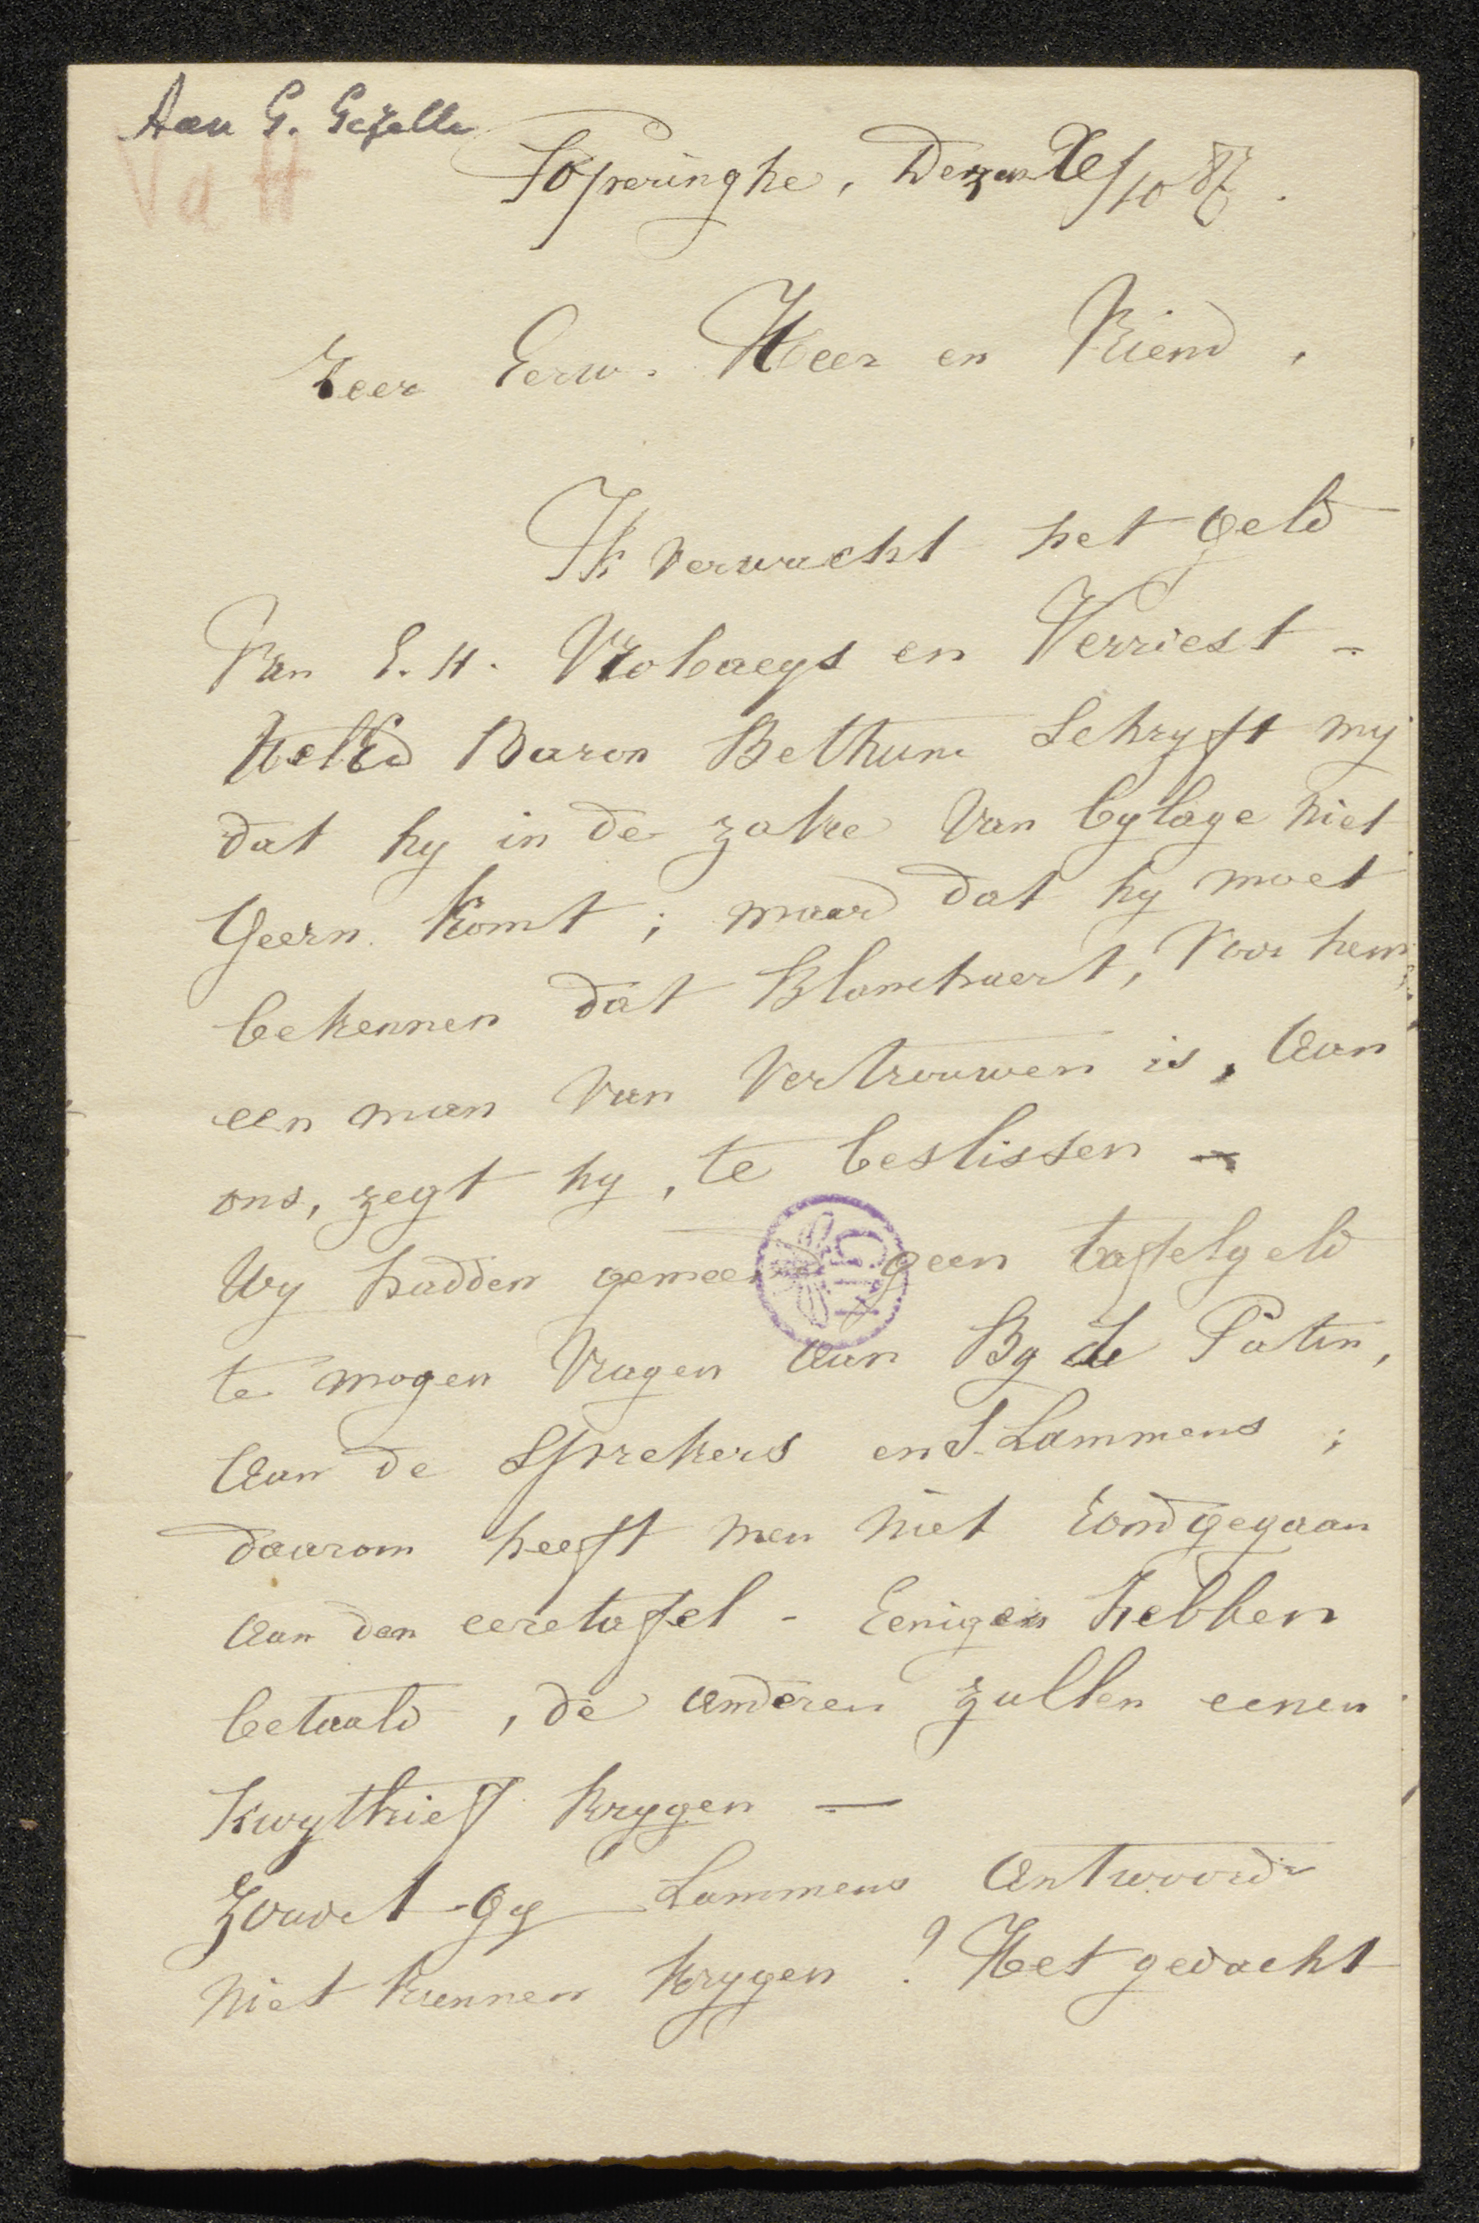 Aan G. Gezelle
Va H
Poperinghe, Dezen Xe/10 87.
Zeer Eerw. Heer en Vriend,
Ik verwacht het geld
Van E. H. Robaeys en Verriest -
Baron Bethune Schryft my
dat hy in de zake van bylage niet
geern komt; maar dat hy moet
bekennen dat Blanchaert, voor hem
een man van vertrouwen is, aan
ons, zegt hy, te beslissen -
Wy hadden gemeend geen tafelgeld
te mogen vragen aan Bg de Patin,
aan de Sprekers en S. Lammens;
daarom heeft men niet rondgegaan
aan den eeretafel - Eenigen hebben
betaald, de anderen zullen eenen
kwythrief krygen —
Zoudt-gy Lammens antwoorde
niet kunnen krygen? Het gedacht